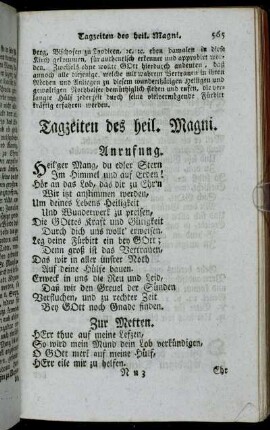 Tagzeiten des heil. Magni. 565
berg, Bischofen zu Lyddien, ec. ec. eben damalen in diese
Kirch gekommen, für authentisch erkennt und approbirt wor-
den. Zweifels ohne wolte GOtt hierdurch andeuten, daß
annoch alle diejenige, welche mit wahrem Vertrauen in ihren
Nöthen und Anliegen zu diesem wunderthätigen Heiligen und
gewaltigen Nothhelfer demüthiglich fliehen und ruffen, die ver-
langte Hülf jederzeit durch seine vielvermögende Fürbitt
kräftig erfahren werden.
Tagzeiten des heil. Magni.
Anrufung.
Heil'ger Mang, du edler Stern
Im Himmel und auf Erden!
Hör an das Lob, das dir zu Ehr'n
Wir itzt anstimmen werden,
Um deines Lebens Heiligkeit
Und Wunderwerk zu preisen,
Die GOttes Kraft und Gütigkeit
Durch dich uns wollt' erweisen.
Leg deine Fürbitt ein bey GOtt;
Denn groß ist das Vertrauen,
Das wir in aller unster Noth
Auf deine Hülfe bauen.
Erweck in uns die Reu und Leid,
Daß wir den Greuel der Sünden
Verfluchen, und zu rechter Zeit
Bey GOtt noch Gnade finden.
Zur Metten.
HErr thue auf meine Lefzen,
So wird mein Mund dein Lob verkündigen,
O GOtt merk auf meine Hülf,
HErr eile mir zu helfen.
Nn 3 Ehr